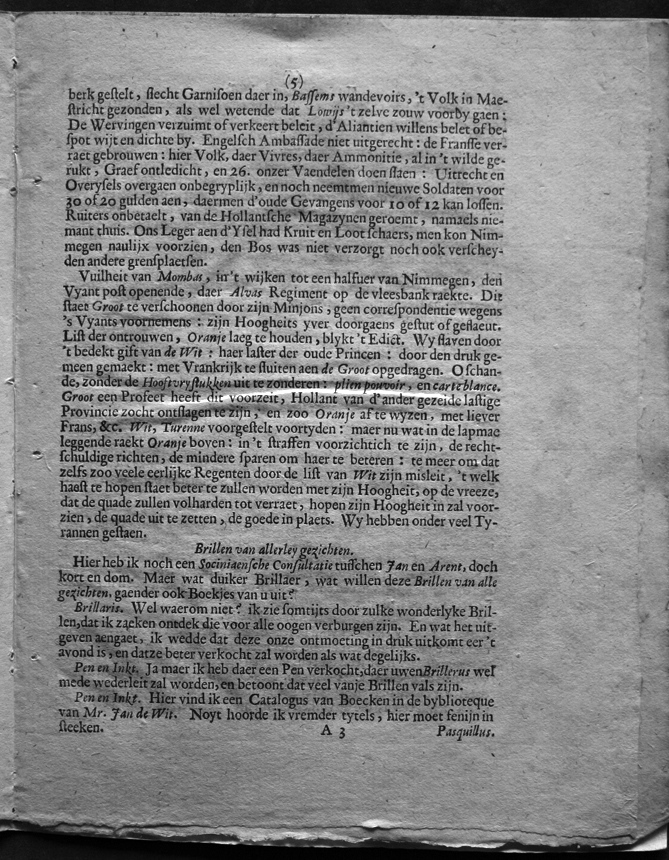 (5)
berk gestelt, slecht Garnisoen daer in, Bassems wandevoirs, 't Volk in Mae-
stricht gezonden, als wel wetende dat Lowijs 't zelve zouw voorby gaen:
De Wervingen verzuimt of verkeert beleit, d'Aliantien willens belet of be-
spot wijt en dichte by. Engelsch Ambassade niet uitgerecht: de Fransse ver-
raet gebrouwen: hier Volk, daer Vivres, daer Ammonitie, al in 't wilde ge-
rukt, Graef ontledicht, en 26. onzer Vaendelen doen slaen: Uitrecht en
Overysels overgaen onbegryplijk, en noch neemtmen nieuwe Soldaten voor
30 of 20 gulden aen, daermen d'oude Gevangens voor 10 of 12 kan lossen.
Ruiters onbetaelt, van de Hollantsche Magazynen geroemt, namaels nie-
mant thuis. Ons Leger aen d'Ysel had Kruit en Loot schaers, men kon Nim-
megen naulijx voorzien, den Bos was niet verzorgt noch ook verschey-
den andere grensplaetsen.
Vuilheit van Mombas, in 't wijken tot een halfuer van Nimmegen, den
Vyant post openende, daer Alvas Regiment op de vleesbank raekte. Dit
staet Groot te verschoonen door zijn Minjons, geen correspondentie wegens
's Vyants voornemens: zijn Hoogheits yver doorgaens gestut of gestaeut.
List der ontrouwen, Oranje laeg te houden, blykt 't Edict. Wy slaven door
't bedekt gift van de Wit: haer laster der oude Princen: door den druk ge-
meen gemaekt: met Vrankrijk te sluiten aen de Groot opgedragen. O schan-
de, zonder de Hooftvrystukken uit te zonderen: plien pouvoir, en carte blance.
Groot een Profeet heeft dit voorzeit, Hollant van d'ander gezeide lastige
Provincie zocht ontslagen te zijn, en zoo Oranje af te wyzen, met liever
Frans, &c. Wit, Turenne voorgestelt voortyden: maer nu wat in de lapmae
leggende raekt Oranje boven: in 't straffen voorzichtich te zijn, de recht-
schuldige richten, de mindere sparen om haer te beteren: te meer om dat
zelfs zoo veele eerlijke Regenten door de list van Wit zijn misleit, 't welk
haest te hopen staet beter te zullen worden met zijn Hoogheit, op de vreeze,
dat de quade zullen volharden tot verraet, hopen zijn Hoogheit in zal voor-
zien, de quade uit te zetten, de goede in plaets. Wy hebben onder veel Ty-
rannen gestaen.
Brillen van allerley gezichten.
Hier heb ik noch een Sociniaensche Consultatie tusschen Jan en Arent, doch
kort en dom. Maer wat duiker Brillaer, wat willen deze Brillen van alle
gezichten, gaender ook Boekjes van u uit?
Brillaris. Wel waerom niet? ik zie somtijts door zulke wonderlyke Bril-
len, dat ik zaeken ontdek die voor alle oogen verburgen zijn. En wat het uit-
geven aengaet, ik wedde dat deze onze ontmoeting in druk uitkomt eer 't
avond is, en datze beter verkocht zal worden als wat degelijks.
Pen en Inkt. Ja maer ik heb daer een Pen verkocht, daer uwen Brillerus wel
mede wederleit zal worden, en betoont dat veel vanje Brillen vals zijn.
Pen en Inkt. Hier vind ik een Catalogus van Boecken in de bybliotheque
van Mr. Jan de Wit. Noyt hoorde ik vremder tytels, hier moet fenijn in
steeken.
A 3 Pasquillus.